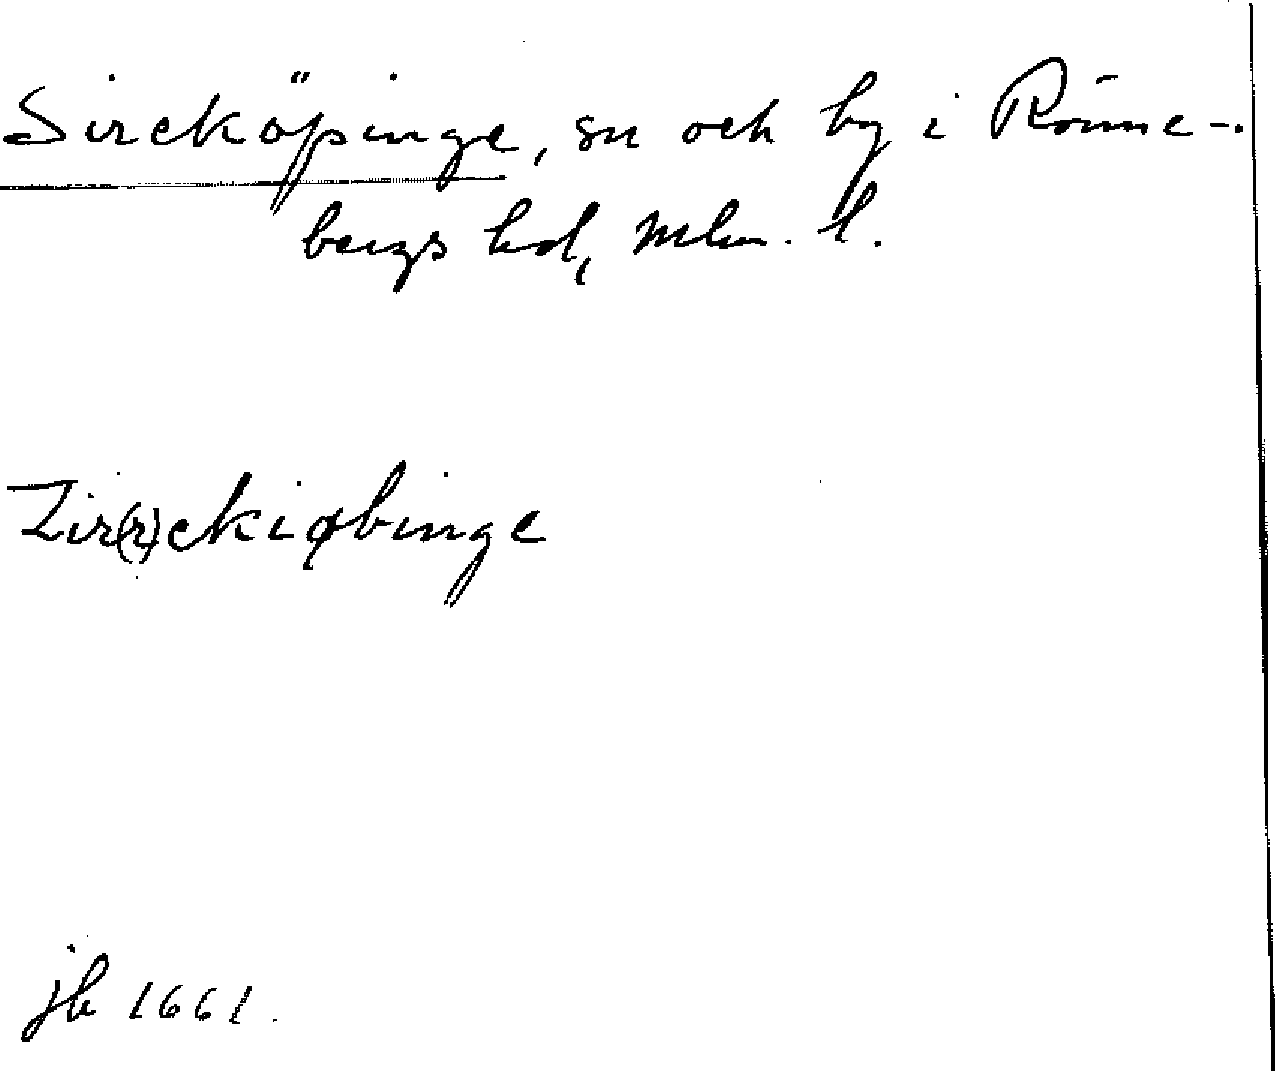 Sireköpinge, sn och by i Rönne-
bergs hd, Mlm. l.
Zir(r)ekiøbinge
jb 1661.